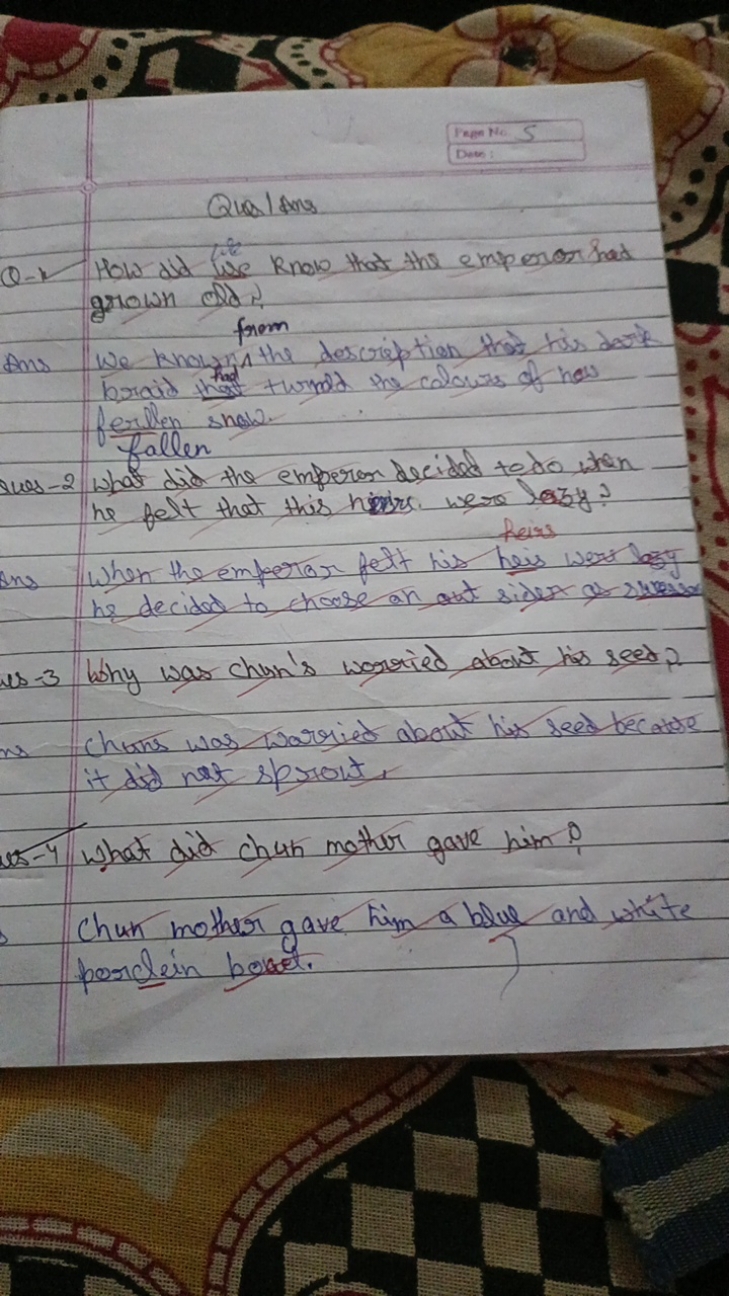 Page No. 5
Date:
Ques/Ans
Q-1 How did we know that the emperor had
grown old?
from
Ans We known the description that his dark
had
braid that turned the colours of new
fellen snow.
fallen
ues-2 what did the emperor decided to do when
he felt that this heirs. were lazy?
heirs
Ans When the emperor felt his heis were lazy
he decided to choose an out sider as
ues-3 Why was chun's worried about his seed?
ns chuns was worried about his seed becatose
it did not sprout.
ues-4 What did chun mother gave him?
s Chun mother gave him a blue and white
porclein bowel.